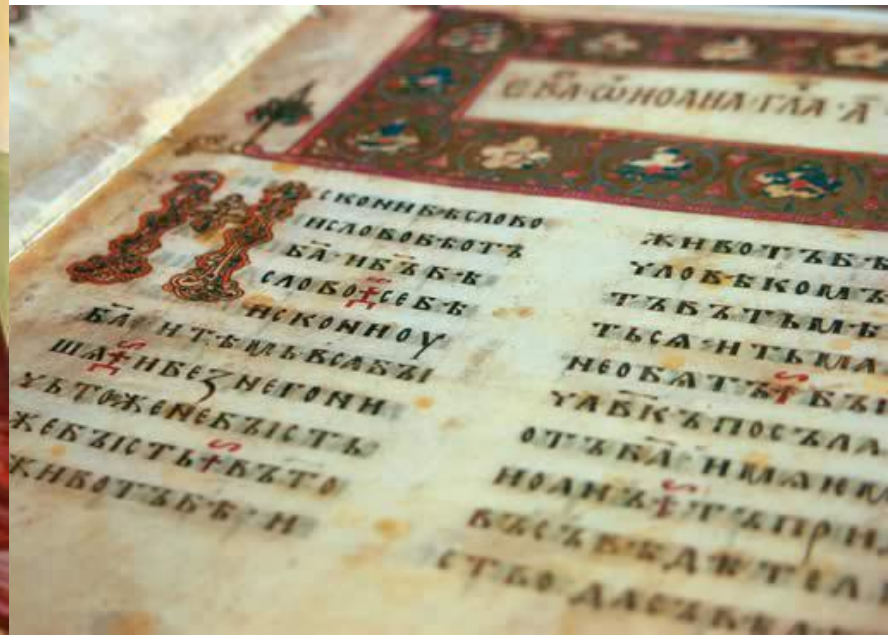 ЕВА҃·ѾИОАНА·ГЛА·А҃
ИСКОНИБѢСЛОВО
ИСЛОВОБѢОТЪ
БА҃·ИБЪ҃БѢ
СЛОВО·СЕБѢ
ИСКОНИОУ
БА҃·ИТѢМЬВСѦБЪІ
ШѦ·ИБЕЗНЕГОНИ
ЧЬТОЖЕНЕБЪІСТЬ
ЖЕБЪІСТЬ·ВЪТО
ЖИВОТЪБѢ·И
ЖИВОТЪБѢ
ЧЛОВѢКОМЪ
ТЪВЪТЪМѢ
ТЬСѦ·ИТЬМА
НЕОБѦТЪ·БЪІ
ЧЛВ҃КЪПОСЪЛА
ОТЪБА҃·ИМѦ
ИОАНЪ·ТЪПРИ
ВЪСЪВѢДѢТЕЛ
СТВО·ДАСЪВѢ